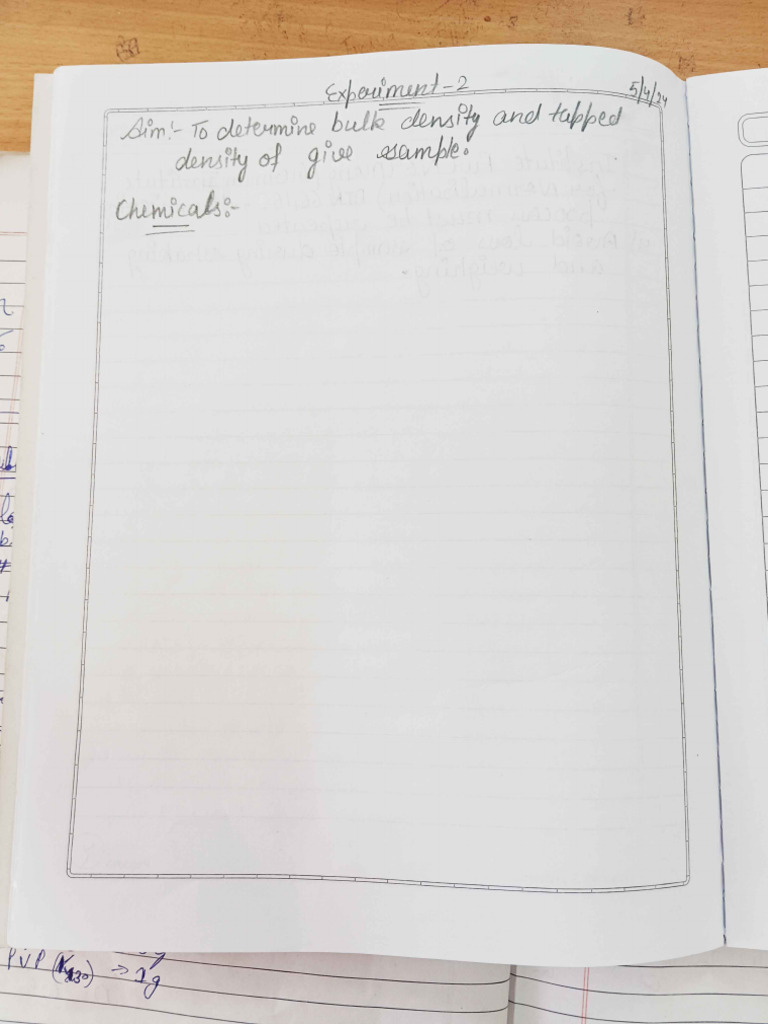 Experiment-2
5/4/24
Aim:- To determine bulk density and tapped
density of give sample.
Chemicals:-
PVP (K30) → 1g